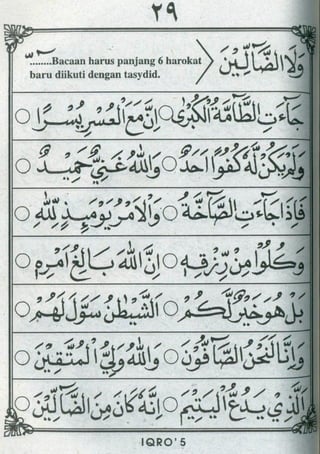 ٢٩
وَلَا الضَّآلِّيْنَ
........Bacaan harus panjang 6 harokat
baru diikuti dengan tasydid.
جَآءَتِ الطَّآمَّةُ الْكُبْرٰى ○ اِنَّ مَعَ الْعُسْرِ يُسْرًا ○
وَلَمْ يَكُنْ لَّهٗ كُفُوًا اَحَدٌ ○ وَاللّٰهُ غَنِيٌّ حَمِيْدٌ ○
فَاِذَا جَآءَتِ الصَّآخَّةُ ○ وَالْاَمْرُ يَوْمَئِذٍ لِلّٰهِ ○
وَكُلُوْا مِنْ رِّزْقِهٖ ○ اِنَّ اللّٰهَ بَالِغُ اَمْرِهٖ ○
بَلْ هُوَ خَيْرٌ لَّكُمْ ○ اَلشَّيْطٰنُ سَوَّلَ لَهُمْ ○
وَاِنَّا لَنَحْنُ الصَّآفُّوْنَ ○ وَاللّٰهُ وَلِيُّ الْمُتَّقِيْنَ ○
اَلَّذِيْ يَدُعُّ الْيَتِيْمَ ○ اِنَّهٗ كَانَ مِنَ الضَّآلِّيْنَ ○
IQRO' 5